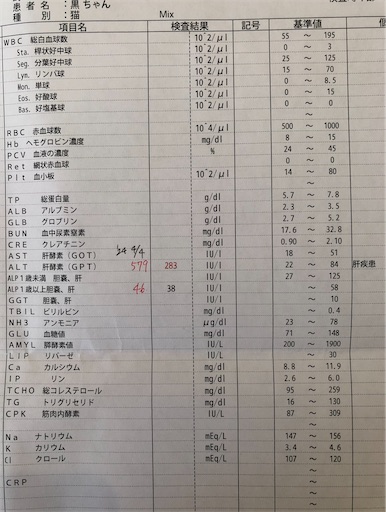 患者名：黒ちゃん
種別：猫 Mix
項目名 検査結果 記号 基準値
WBC 総白血球数 10^2/μl 55 ～ 195
Sta. 桿状好中球 10^2/μl 0 ～ 3
Seg. 分葉好中球 10^2/μl 25 ～ 125
Lym. リンパ球 10^2/μl 15 ～ 70
Mon. 単球 10^2/μl 0 ～ 8
Eos. 好酸球 10^2/μl 0 ～ 15
Bas. 好塩基球 10^2/μl 0 ～ 0
RBC 赤血球数 10^4/μl 500 ～ 1000
Hb ヘモグロビン濃度 mg/dl 8 ～ 15
PCV 血液の濃度 % 24 ～ 45
Ret 網状赤血球 0 ～ 0
Plt 血小板 10^2/μl 14 ～ 80
TP 総蛋白量 g/dl 5.7 ～ 7.8
ALB アルブミン g/dl 2.3 ～ 3.5
GLB グロブリン g/dl 2.7 ～ 5.2
BUN 血中尿素窒素 mg/dl 17.6 ～ 32.8
CRE クレアチニン mg/dl 0.90 ～ 2.10
AST 肝酵素(GOT) IU/l 18 ～ 51
ALT 肝酵素(GPT) 579 283 IU/l 22 ～ 84 肝疾患
ALP1歳未満 胆嚢、肝 IU/l 27 ～ 125
ALP1歳以上胆嚢、肝 46 38 IU/l ～ 58
GGT 胆嚢、肝 IU/l ～ 10
TBIL ビリルビン mg/dl ～ 0.4
NH3 アンモニア μg/dl 23 ～ 78
GLU 血糖値 mg/dl 71 ～ 148
AMYL 膵酵素値 IU/L 200 ～ 1900
LIP リパーゼ IU/L ～ 30
Ca カルシウム mg/dl 8.8 ～ 11.9
IP リン mg/dl 2.6 ～ 6.0
TCHO 総コレステロール mg/dl 95 ～ 259
TG トリグリセリド mg/dl 16 ～ 130
CPK 筋肉内酵素 IU/L 87 ～ 309
Na ナトリウム mEq/L 147 ～ 156
K カリウム mEq/L 3.4 ～ 4.6
Cl クロール mEq/L 107 ～ 120
～
CRP ～
～